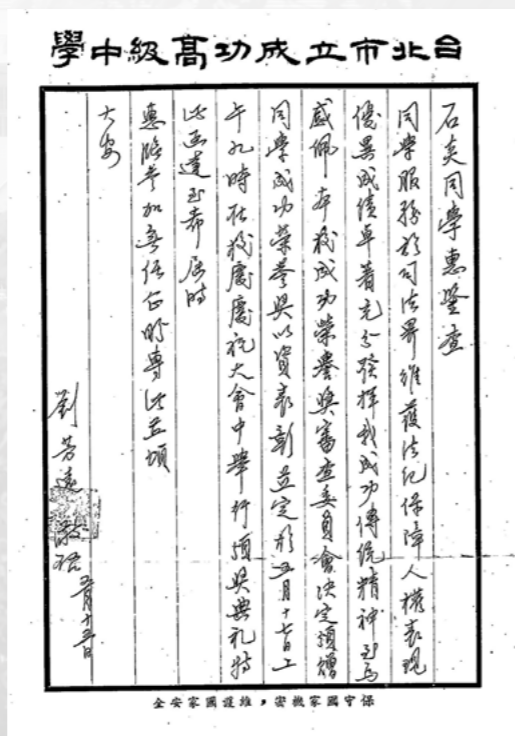 台北市立成功高級中學
石炎同學惠鑒查
同學服務於司法界維護法紀保障人權表現
優異成績卓著充分發揮我成功傳統精神至為
感佩 本校成功榮譽獎審查委員會決定頒贈
同學成功榮譽獎以資表彰並定於五月十七日上
午九時在校慶慶祝大會中舉行頒獎典礼特
此函達至希屆時
惠臨參加無任企盼專此並頌
大安
劉芳遠 敬啓 五月十五日
保守國家機密,維護國家安全